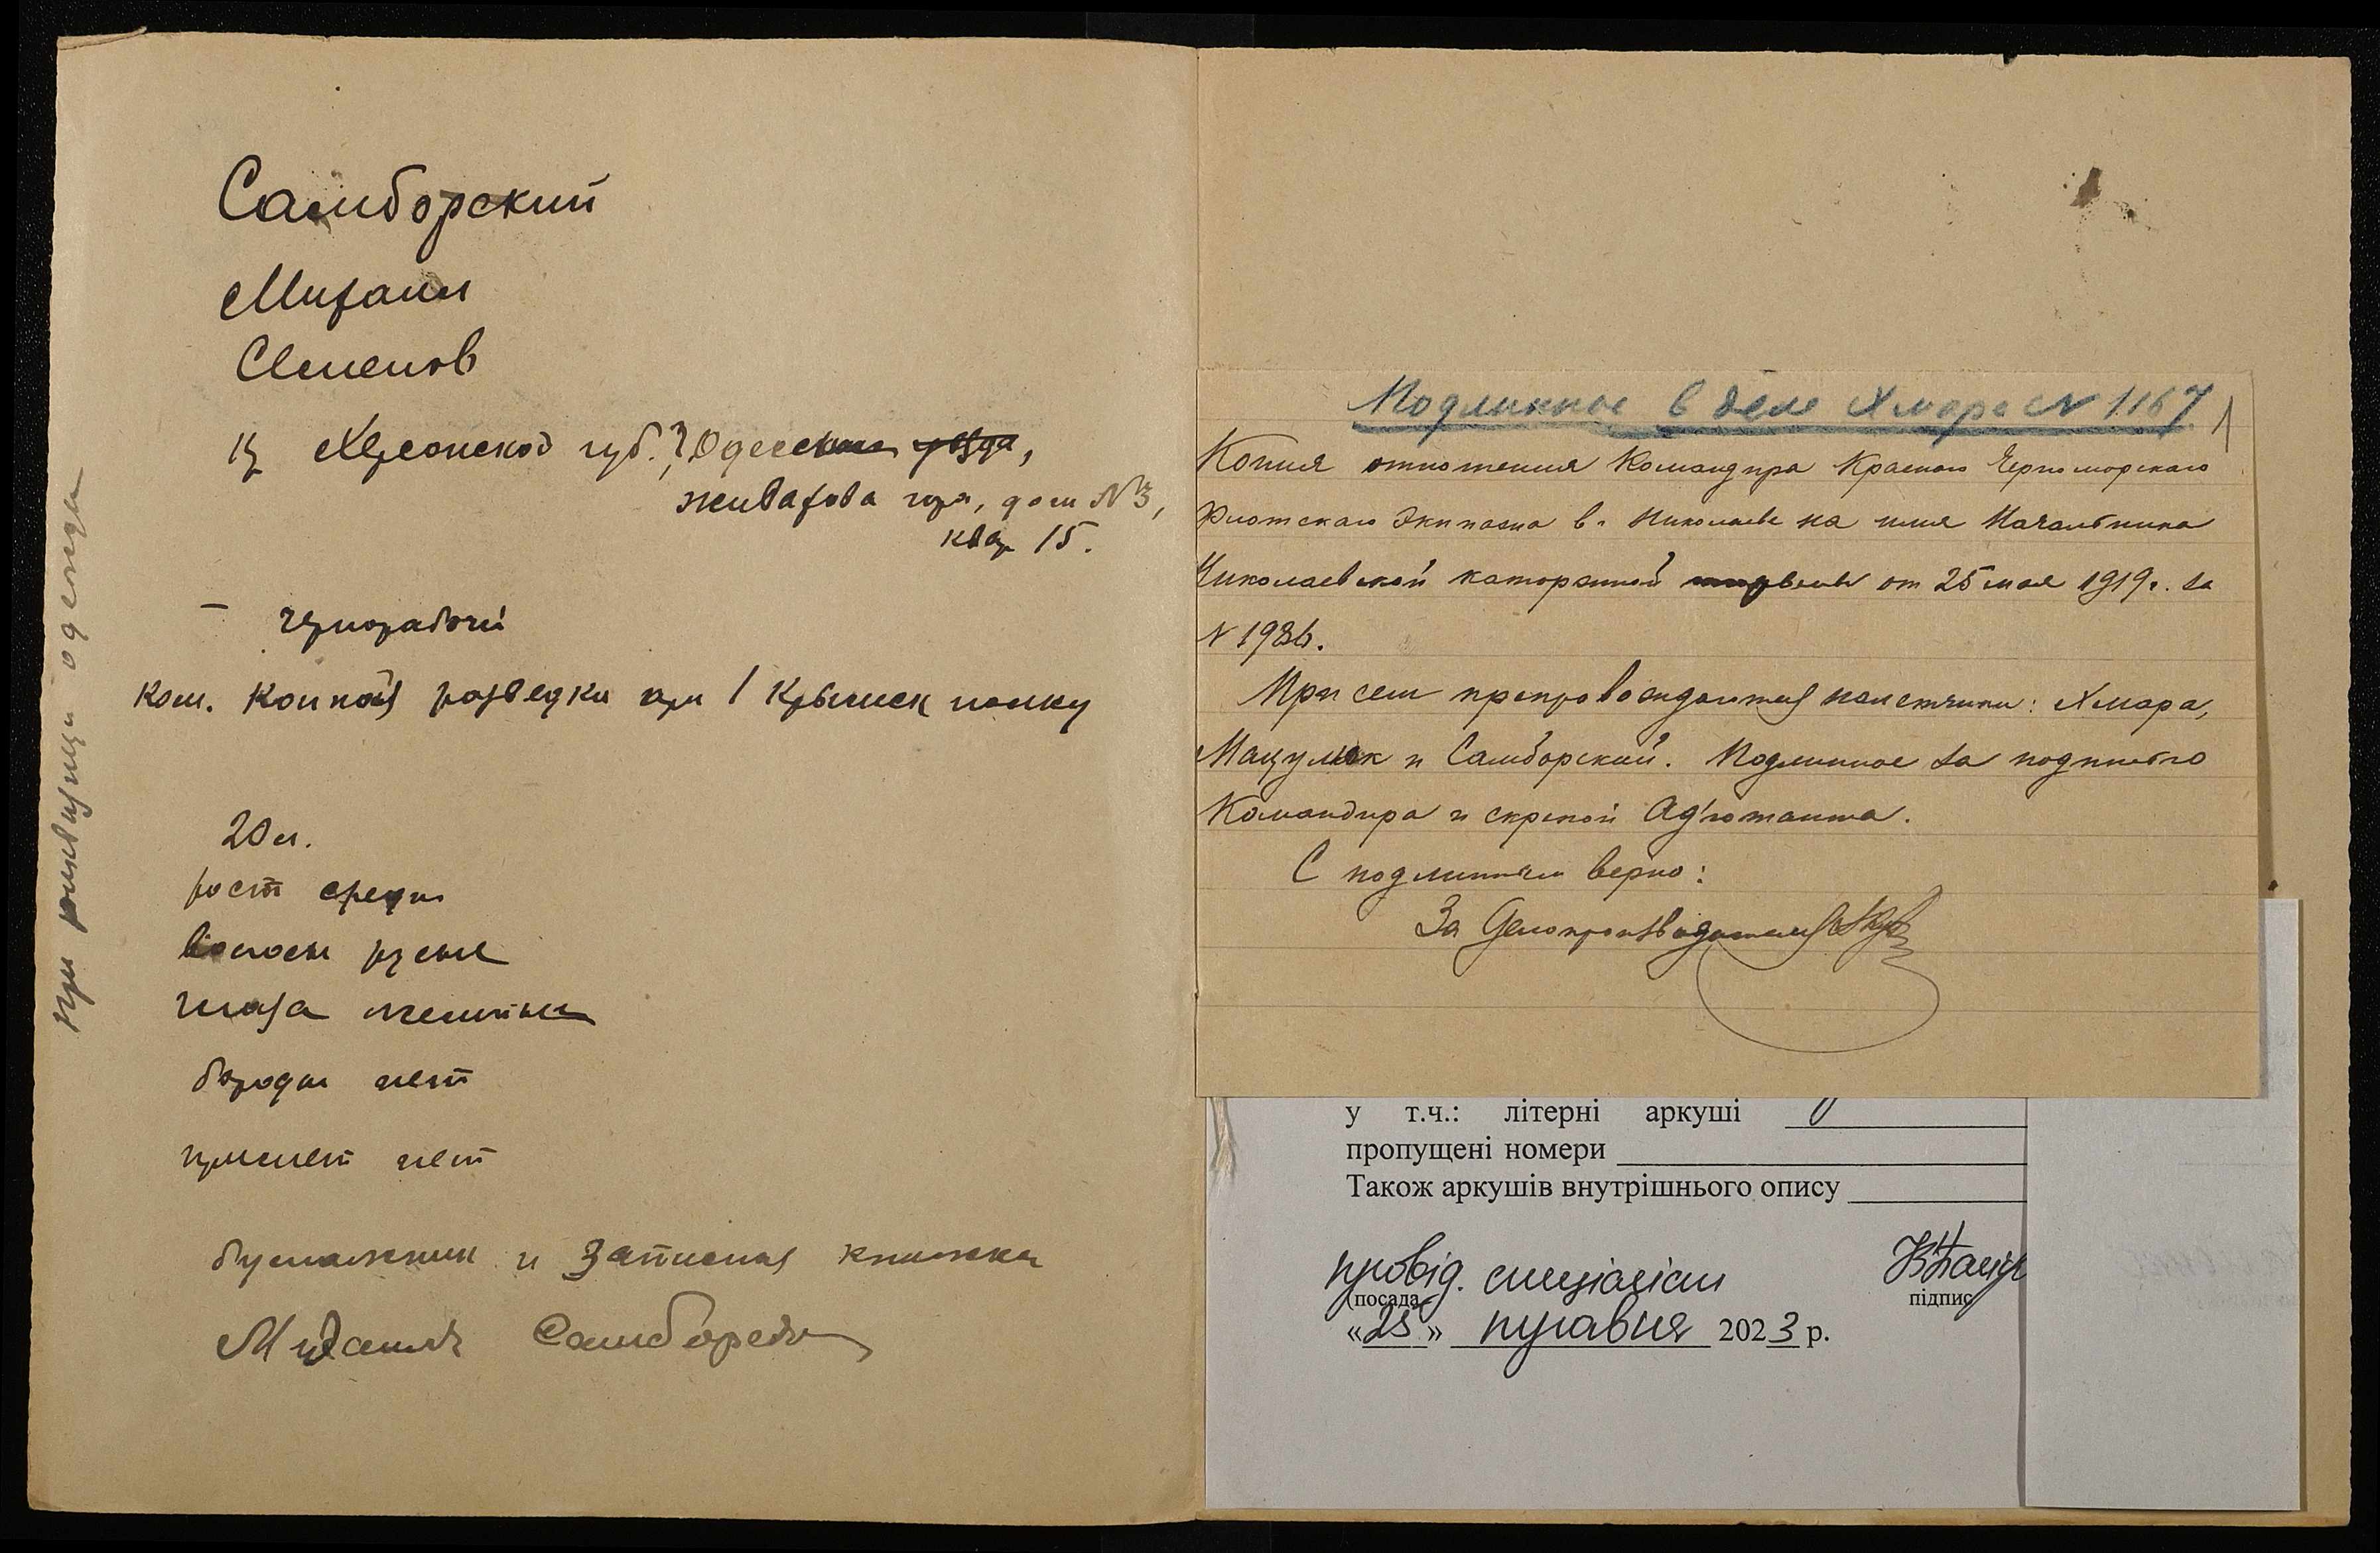 Самборский
Михаил
Семенов
из Херсонской губ. г. Одесс уезда,
Живахова гора, дом N 3,
квар 15.
– чернорабочий
ком. конной разведки при 1 Крымск полку
20 л.
рост средн
волосы русые
глаза желтые
бороды нет
примет нет
бумажник и записная книжка
Михаилъ Самборски
при одежда
Подлинное в деле Хмара N 1167
1
Копия отношения Командира Красного Черноморскаго
Флотскаго Экипажа в г. Николаеве на имя Начальника
Николаевской каторжной от 25 мая 1919 г. за
N 1986.
При сем препровождаются : Хмара,
Мацумак и Самборский. Подлинное за подписью
Командира и скрепой Ад'ютанта.
С подлинным верно:
За Делопроизводителя
у т.ч.: літерні аркуші
пропущені номери
Також аркушів внутрішнього опису
провід. спеціаліст
(посада
підпис
«25» 2023 р.